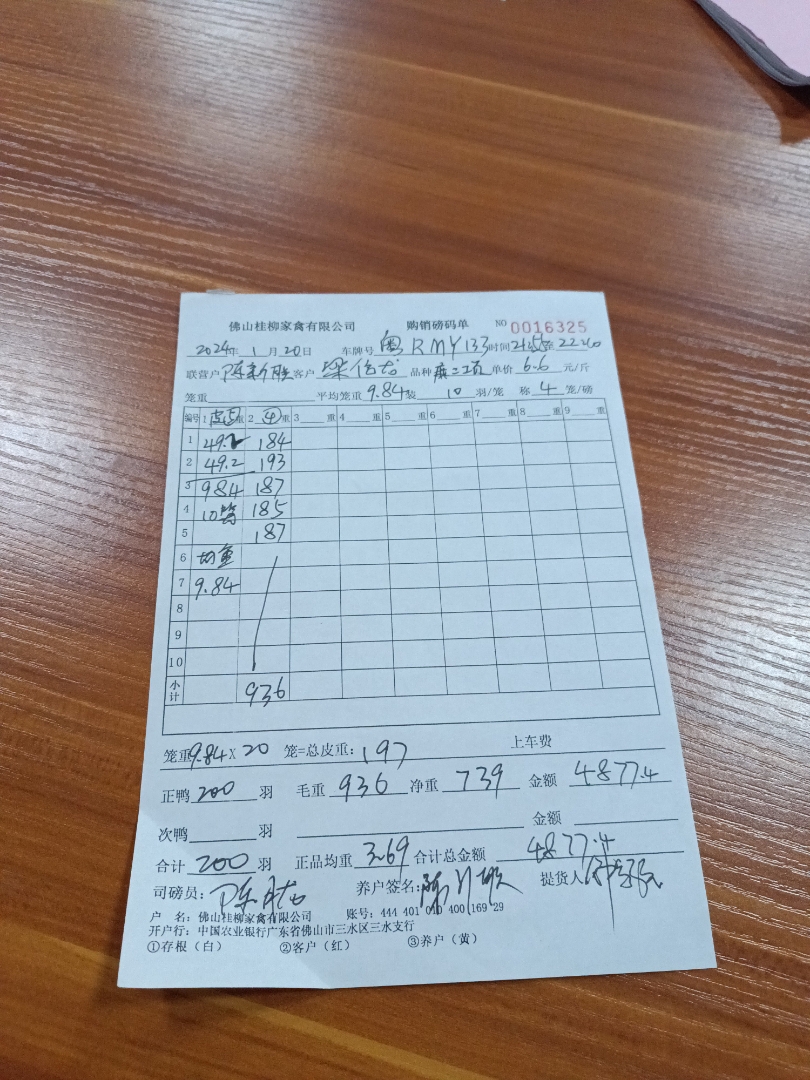 佛山桂柳家禽有限公司 购销磅码单 NO 0016325
2024年 1月 20日 车牌号 粤RMY133 时间 2155至 2240
联营户 陈 客户 梁 品种 单价 6.6 元/斤
笼重 平均笼重 9.84 装 10 羽/笼 称 4 笼/磅
编号 1 皮 重 2 毛 重 3 重 4 重 5 重 6 重 7 重 8 重 9 重
1 49.2 184
2 49.2 193
3 98.4 187
4 10笼 185
5 187
6 均重
7 9.84
8
9
10
小计 936
笼重 9.84 X 20 笼=总皮重: 197 上车费
正鸭 200 羽 毛重 936 净重 739 金额 4877.4
次鸭 羽 金额
合计 200 羽 正品均重 3.69 合计总金额 4877.4
司磅员: 陈 养户签名: 陈 提货人
户 名: 佛山桂柳家禽有限公司 账号: 444 401 010 400 169 29
开户行: 中国农业银行广东省佛山市三水区三水支行
①存根(白) ②客户(红) ③养户(黄)